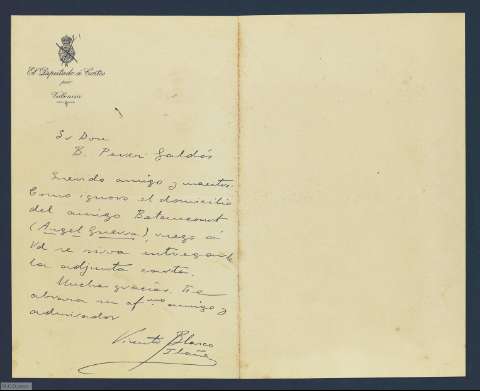 El Diputado á Cortes
por
Valencia
Sr Don
B. Perez Galdós
Querido amigo y maestro:
Como ignoro el domicilio
del amigo Betancourt
(Angel Guerra), ruego á
Vd se sirva entregarle
la adjunta carta.
Muchas gracias. Le
abraza su afmo amigo y
admirador
Vicente Blasco
Ibáñez